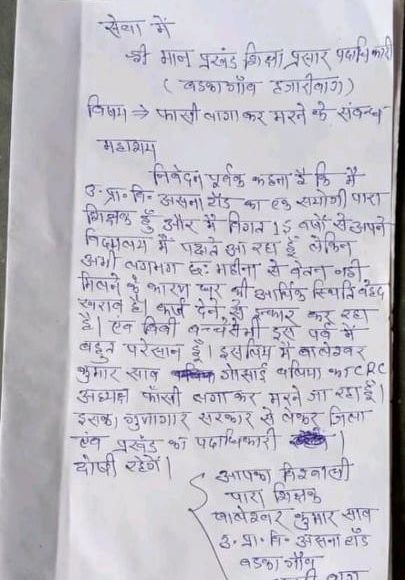 सेवा में
श्री मान प्रखंड शिक्षा प्रसार पदाधिकारी
( बडकागाँव हजारीबाग )
विषय ⇒ फासी लगा कर मरने के संबन्ध
महाशय
निवेदन पूर्वक कहना है कि मैं
उ. प्रा. वि. असना टाँड का एक सहयोगी पारा
शिक्षक हुँ और मैं विगत 15 वर्षों से अपने
विद्यालय में पढ़ाते आ रहा हुँ लेकिन
अभी लगभग छ: महीना से वेतन नही
मिलने के कारण घर की आर्थिक स्थिति बेहद
खराब है। कर्ज देने से इन्कार कर रहा
है। एवं बिवी बच्चे सभी इस पर्व में
बहुत परेसान हैं। इसलिय मैं बालेश्वर
कुमार साव गोसाई बलिया का CRC
अध्यक्ष फाँसी लगा कर मरने जा रहा हुँ।
इसका गुनागार सरकार से लेकर जिला
एवं प्रखंड का पदाधिकारी
दोषी रहेगें।
आपका विश्वासी
पारा शिक्षक
बालेश्वर कुमार साव
उ. प्रा. वि. असना टाँड
बडका गाँव